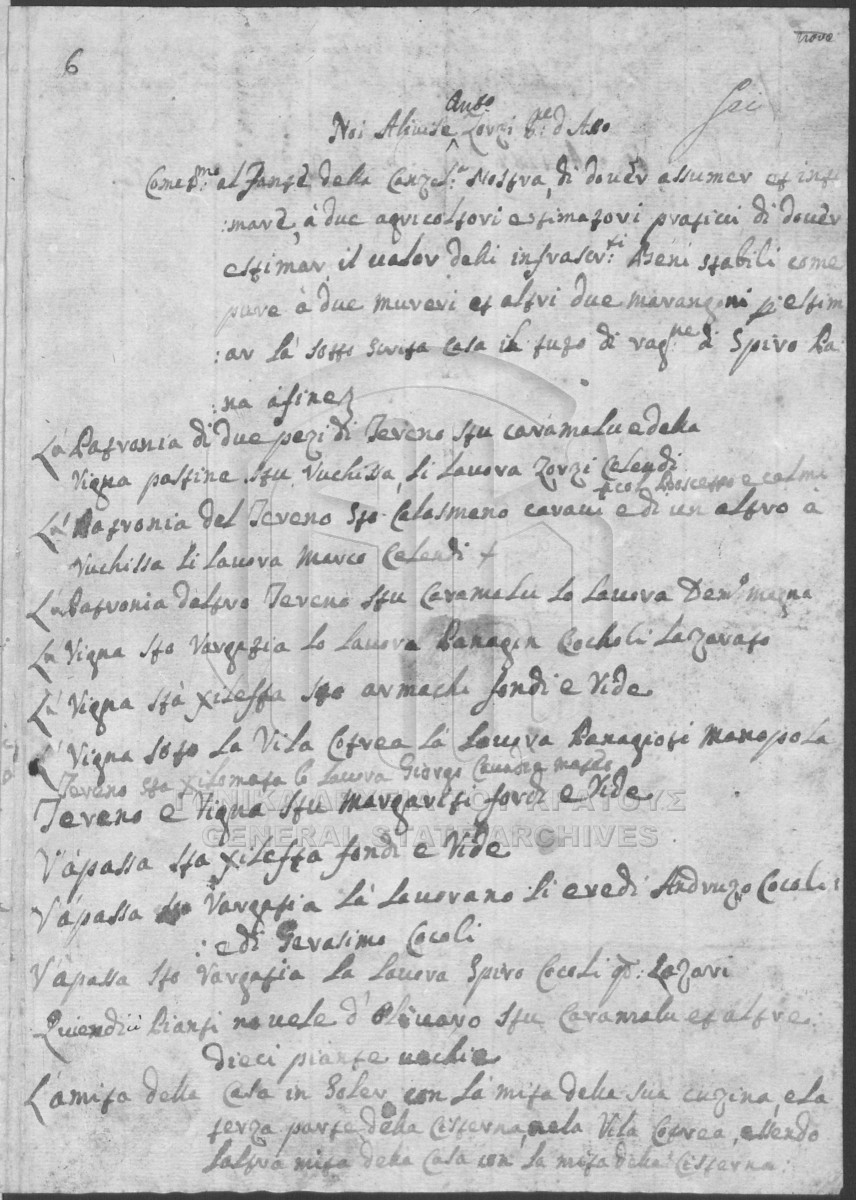 6
Noi Alvise Anto Zorzi Pr. d'Asso
al Fante della Canzel.a Nostra, di dover assumer et inti
:mare, à due agricoltori estimatori pratici di dover
estimar il valor delli infrascr.ti Beni stabili come
pure à due mureri et altri due marangoni p estim
:ar la sotto scrita casa il tuto di rag.ne di Spiro Pa
:na afine
La Patronia di due pezi di Tereno stu caramalu e della
Vigna pastine stu Vuchissa, li lavora Zorzi Calendi
La Patronia del Tereno Sto Calasmeno caravi e di un altro à
Vuchissa li lavora Marco Calendi +
La Patronia d'altro Tereno stu Caramalu lo lavora Dem.o magna
La Vigna sto Vargatia lo lavora Panagin Cocholi Lazarato
La Vigna stà xileffa sto armachi fondi e Vide
La Vigna soto La Vila Cotrea là lavora Panagioti Manopola
Tereno sta xilomata lo lavora Giorgo
Tereno e Vigna stu margariti fondi e Vide
V'apassa sta xileffa fondi e Vide
V'apassa sto Vargatia Là lavorano li eredi Andruzo Cocoli
: e di Gerasimo Cocoli
V'apassa sto Vargatia La lavora Spiro Cocoli q: Lazari
Quiendici Pianti novele d'Olivaro stu Caramalu et altre
dieci piante vechie
L'amita della Casa in Soler con la mita della sua cuzina, e la
terza parte della Cisterna, nela Vila Cotrea, essendo
l'altra mita della Casa con la mita della Cisterna:
ΓΕΝΙΚΑ ΑΡΧΕΙΑ ΤΟΥ ΚΡΑΤΟΥΣ
GENERAL STATE ARCHIVES